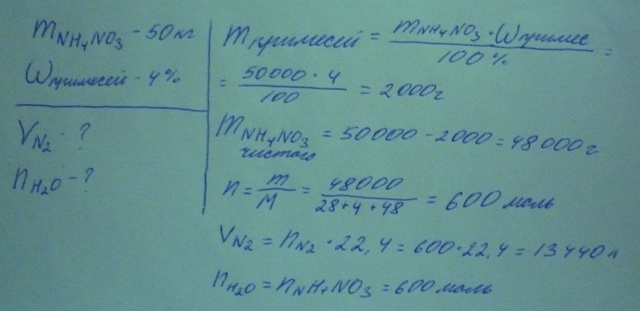 mNH4NO3 - 50 кг
Wпримесей - 4%
VN2 - ?
nH2O - ?
mпримесей = mNH4NO3 · Wпримес / 100% =
= 50000 · 4 / 100 = 2000г
mNH4NO3 = 50000 - 2000 = 48000г
чистого
n = m / M = 48000 / 28+4+48 = 600 моль
VN2 = nN2 · 22,4 = 600·22,4 = 13440 л
nH2O = nNH4NO3 = 600 моль